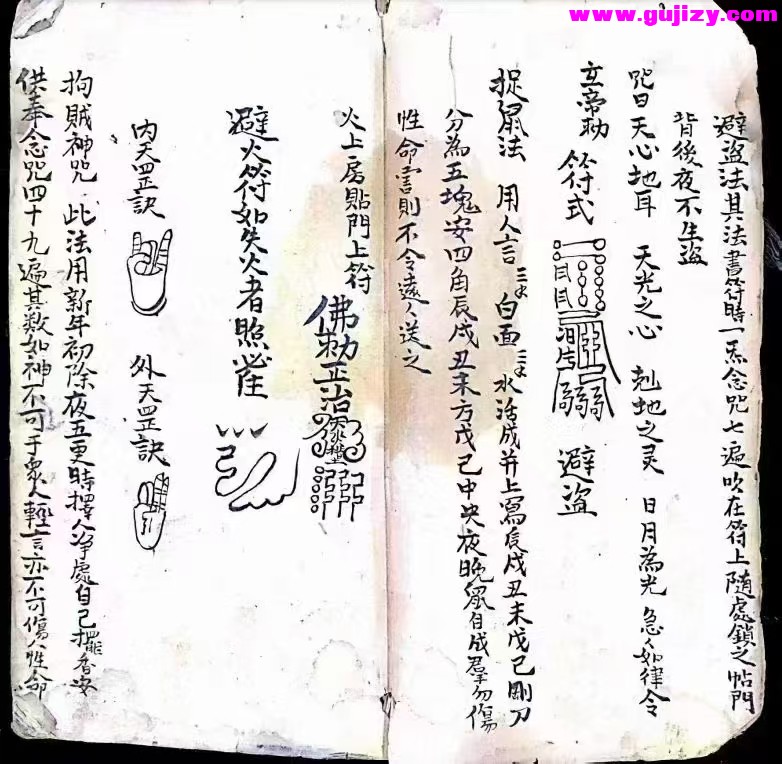 www.gujizy.com
避盗法其法書符時一炁念咒七遍吹在符上隨處鎖之帖門
背後夜不生盗
咒曰天心地耳 天光之心 剋地之灵 日月為光 急如律令
立帝勅 符式 避盗
捉鼠法 用人言三 白面三 水活成并上寫辰戌丑未戊己剛刀
分為五塊安四角辰戌丑未方戊己中央夜晚鼠自成羣勿傷
性命害則不令遠人送之
火上房貼門上符 佛勅正治
避火符如失火者照
內天罡訣
外天罡訣
拘賊神咒 此法用新年初除夜五更時擇人净處自己擺香安
供奉念咒四十九遍其数如神不可于衆人輕言亦不可傷人性命